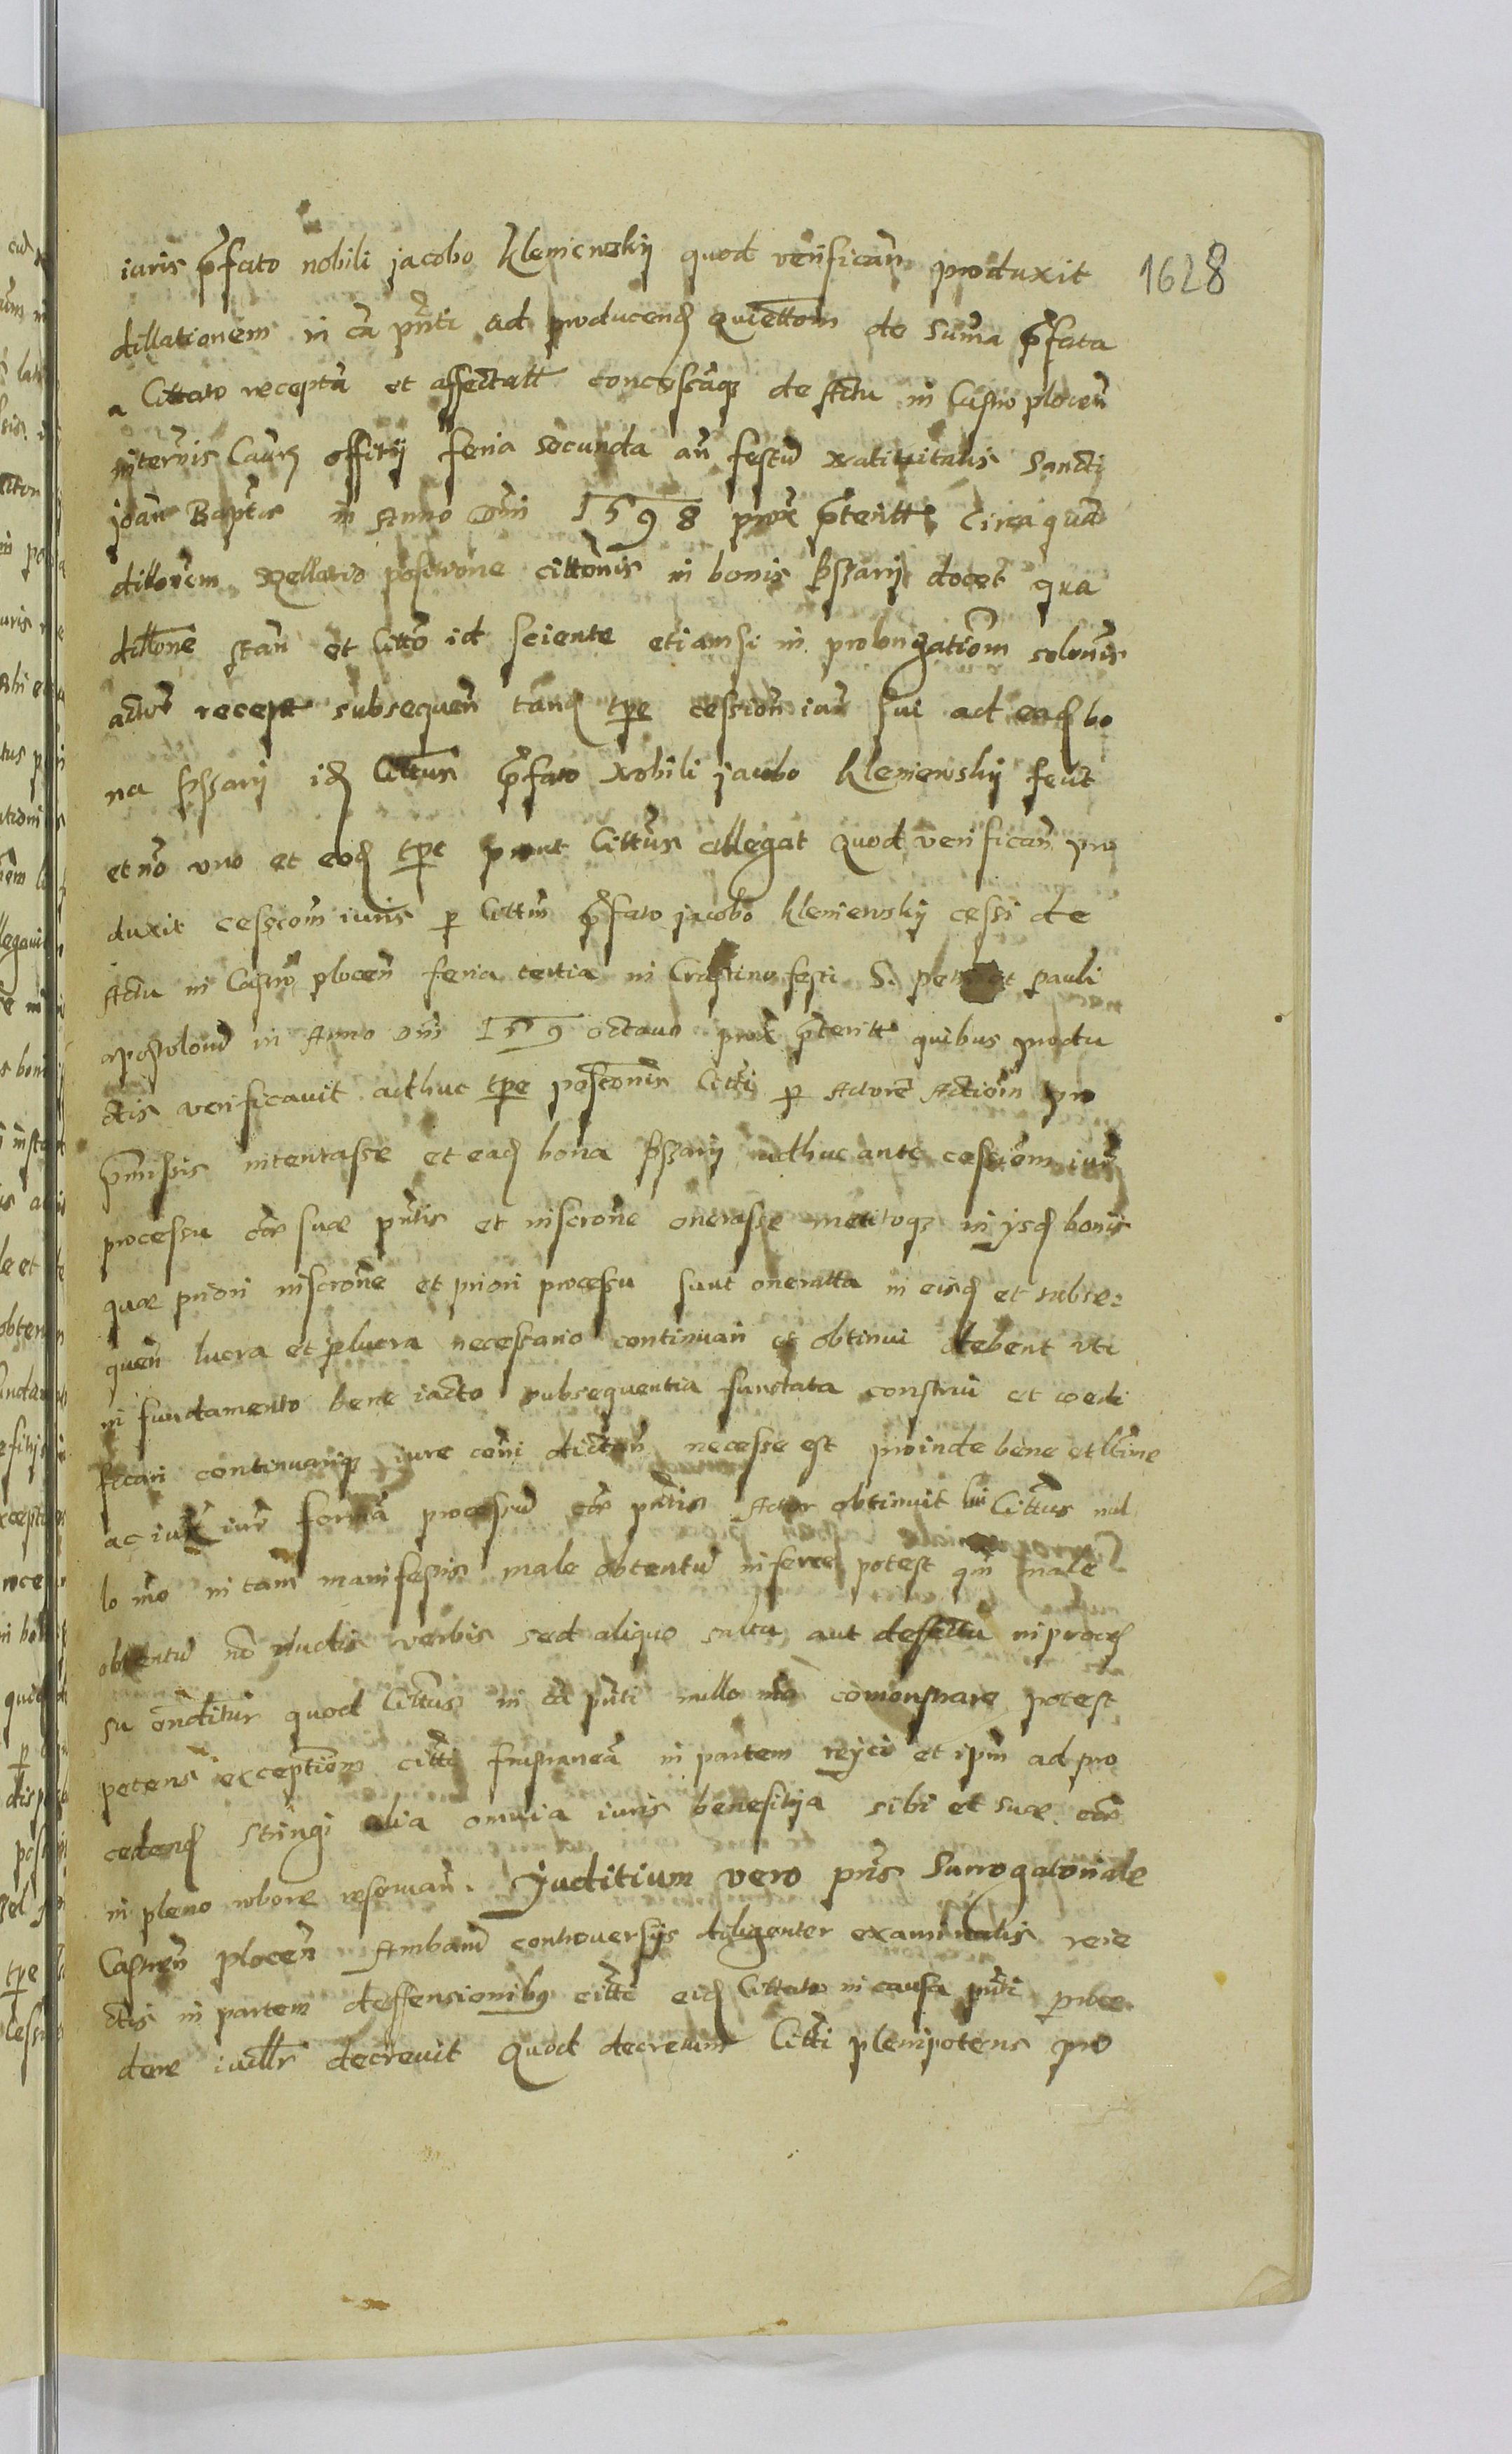 iuris p̃fato nobili jacobo Kleniewskij quod verifican̄ produxit
1628
dillationem in cã pñti ad producend quiettoñ de suma p̃fata
a Cittato receptã et affectatt concessamq de Actu in Castro plocen̄
in terminis offitij feria secunda an̄ festũ Natiuitatis Sancti
joan̄ Baptis in Anno Dñi 1598 prox p̃teritt Circa quã
dillõnem positione cittõnis in bonis docet qua
dillõne stañ et Citto id sciente etiamsi in prolongatioñ
actor recept subsequen̄ tand tpe cession̄ iur̃ sui ad ead bo
na id Cittus p̃fato Nobili jacobo Kleniewskij fecit
et nõ vno et eod tpe prout Cittus allegat Quod verifican̄ pro
duxit cessioñ iuris p Cittm̃ p̃fato jacobo Kleniewskij cessi de
Actu in Castro plocen̄ feria tertia in Crastino festi S. petri et pauli
apostolorũ in Anno Dñi 159 octauo prox p̃teritt quibus produ
ctis verificauit adhuc tpe Citti p Actorẽ Actioñ pro
p̃missis intentasse et ead bona adhuc ante cessioñ iur̃
processu cãe suae pñtis et inscrõne onerasse meritoq in ysd bonis
quae priori inscrõne et priori processu sunt oneratta in eisd et subse:
quen̄ lucra et plucra necessario continuari et obtinui debent vti
in fundamento bene iacto subsequentia fundata construi et oedi
ficari continuariq iure cõni dictañ necesse est proinde bene et
ac iux iur̃ formã processũ cãe pñtis Actor obtinuit Cittus nul
lo mõ in tam manifestis male obtentũ inferre potest qui male
obtentũ nõ nudis verbis sed aliquo saltu aut defectu in proces
su õnditur quod Cittus in cã pñti nullo mõ comonstrare potest
petens exceptioñ citti frustraneã in partem reijci et ipm̃ ad pro
cedend stringi alia omnia iuris benefitija sibi et suae cãe
in pleno robore reseruan̄. Juditium vero pñs Surrogatoriale
Castren̄ plocen̄ Ambarũ controuersijs diligenter examinatis reie
ctis in partem deffensionibq citti eid Cittato in causa pñti proce
dere iudllr decreuit Quod decretum Citti plenipotens pro